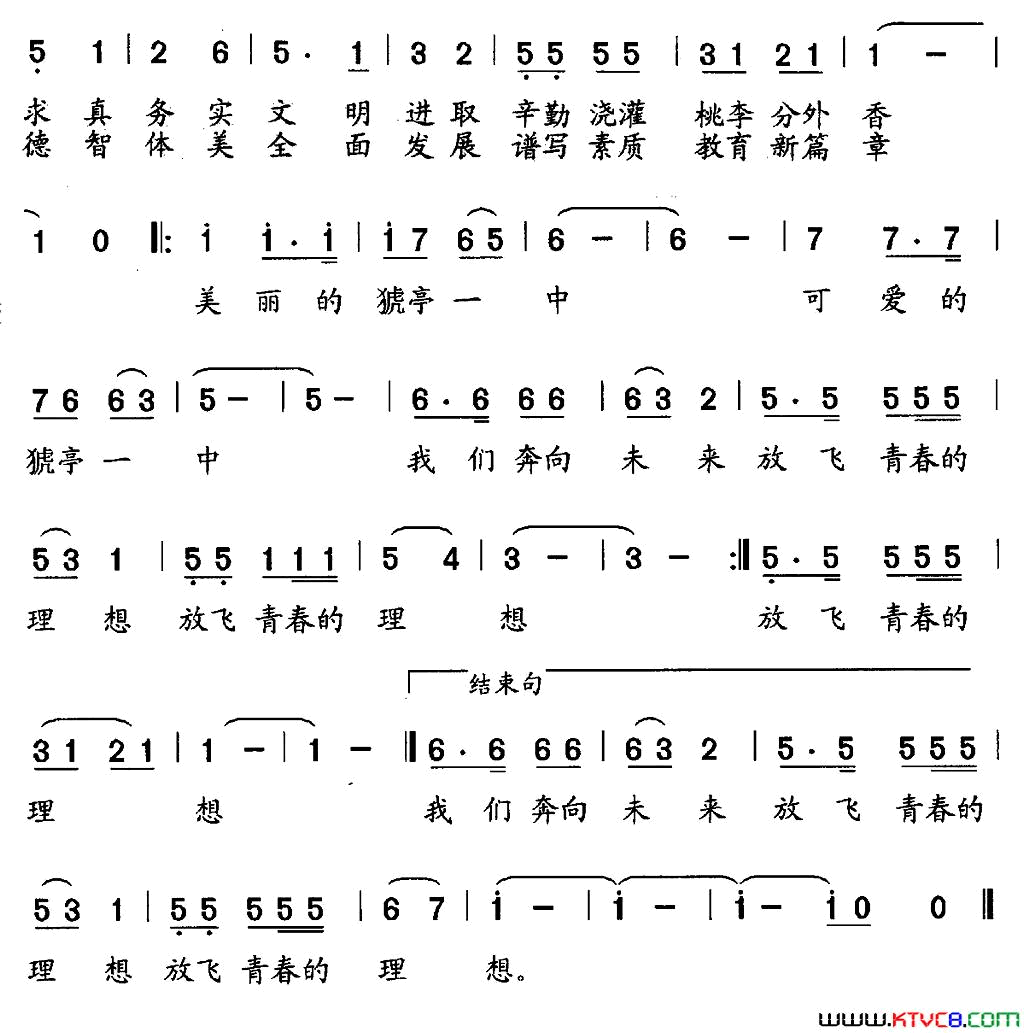 5 1 | 2 6 | 5 · 1 | 3 2 | 5 5 5 5 | 3 1 2 1 | 1 － |
求真务实文明进取辛勤浇灌 桃李分外香
德智体美全面发展谱写素质 教育新篇章
1 0 ‖: i i · i | i 7 6 5 | 6 － | 6 － | 7 7 · 7 |
美丽的猇亭一中 可爱的
7 6 6 3 | 5 － | 5 － | 6 · 6 6 6 | 6 3 2 | 5 · 5 5 5 5 |
猇亭一中 我们奔向未来放飞青春的
5 3 1 | 5 5 1 1 1 | 5 4 | 3 － | 3 － :‖ 5 · 5 5 5 5 |
理想 放飞青春的理想 放飞青春的
结束句
3 1 2 1 | 1 － | 1 － ‖ 6 · 6 6 6 | 6 3 2 | 5 · 5 5 5 5 |
理想 我们奔向未来放飞青春的
5 3 1 | 5 5 5 5 5 | 6 7 | i － | i － | i － | i 0 0 ‖
理想放飞青春的理想。
www.KTVC8.com